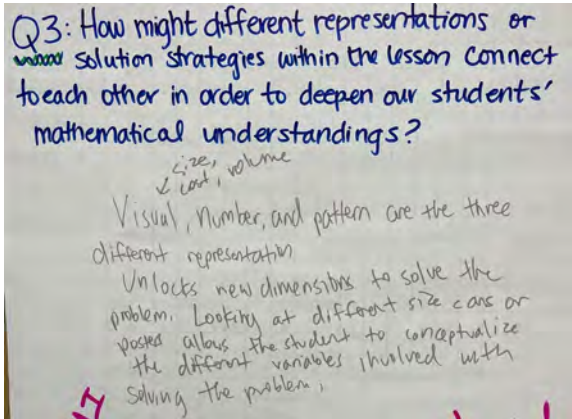 Q3: How might different representations or
solution strategies within the lesson connect
to each other in order to deepen our students'
mathematical understandings?
size,
cost, volume
Visual, number, and pattern are the three
different representation
Unlocks new dimensions to solve the
problem. Looking at different size cans or
posted allows the student to conceptualize
the different variables involved with
solving the problem.